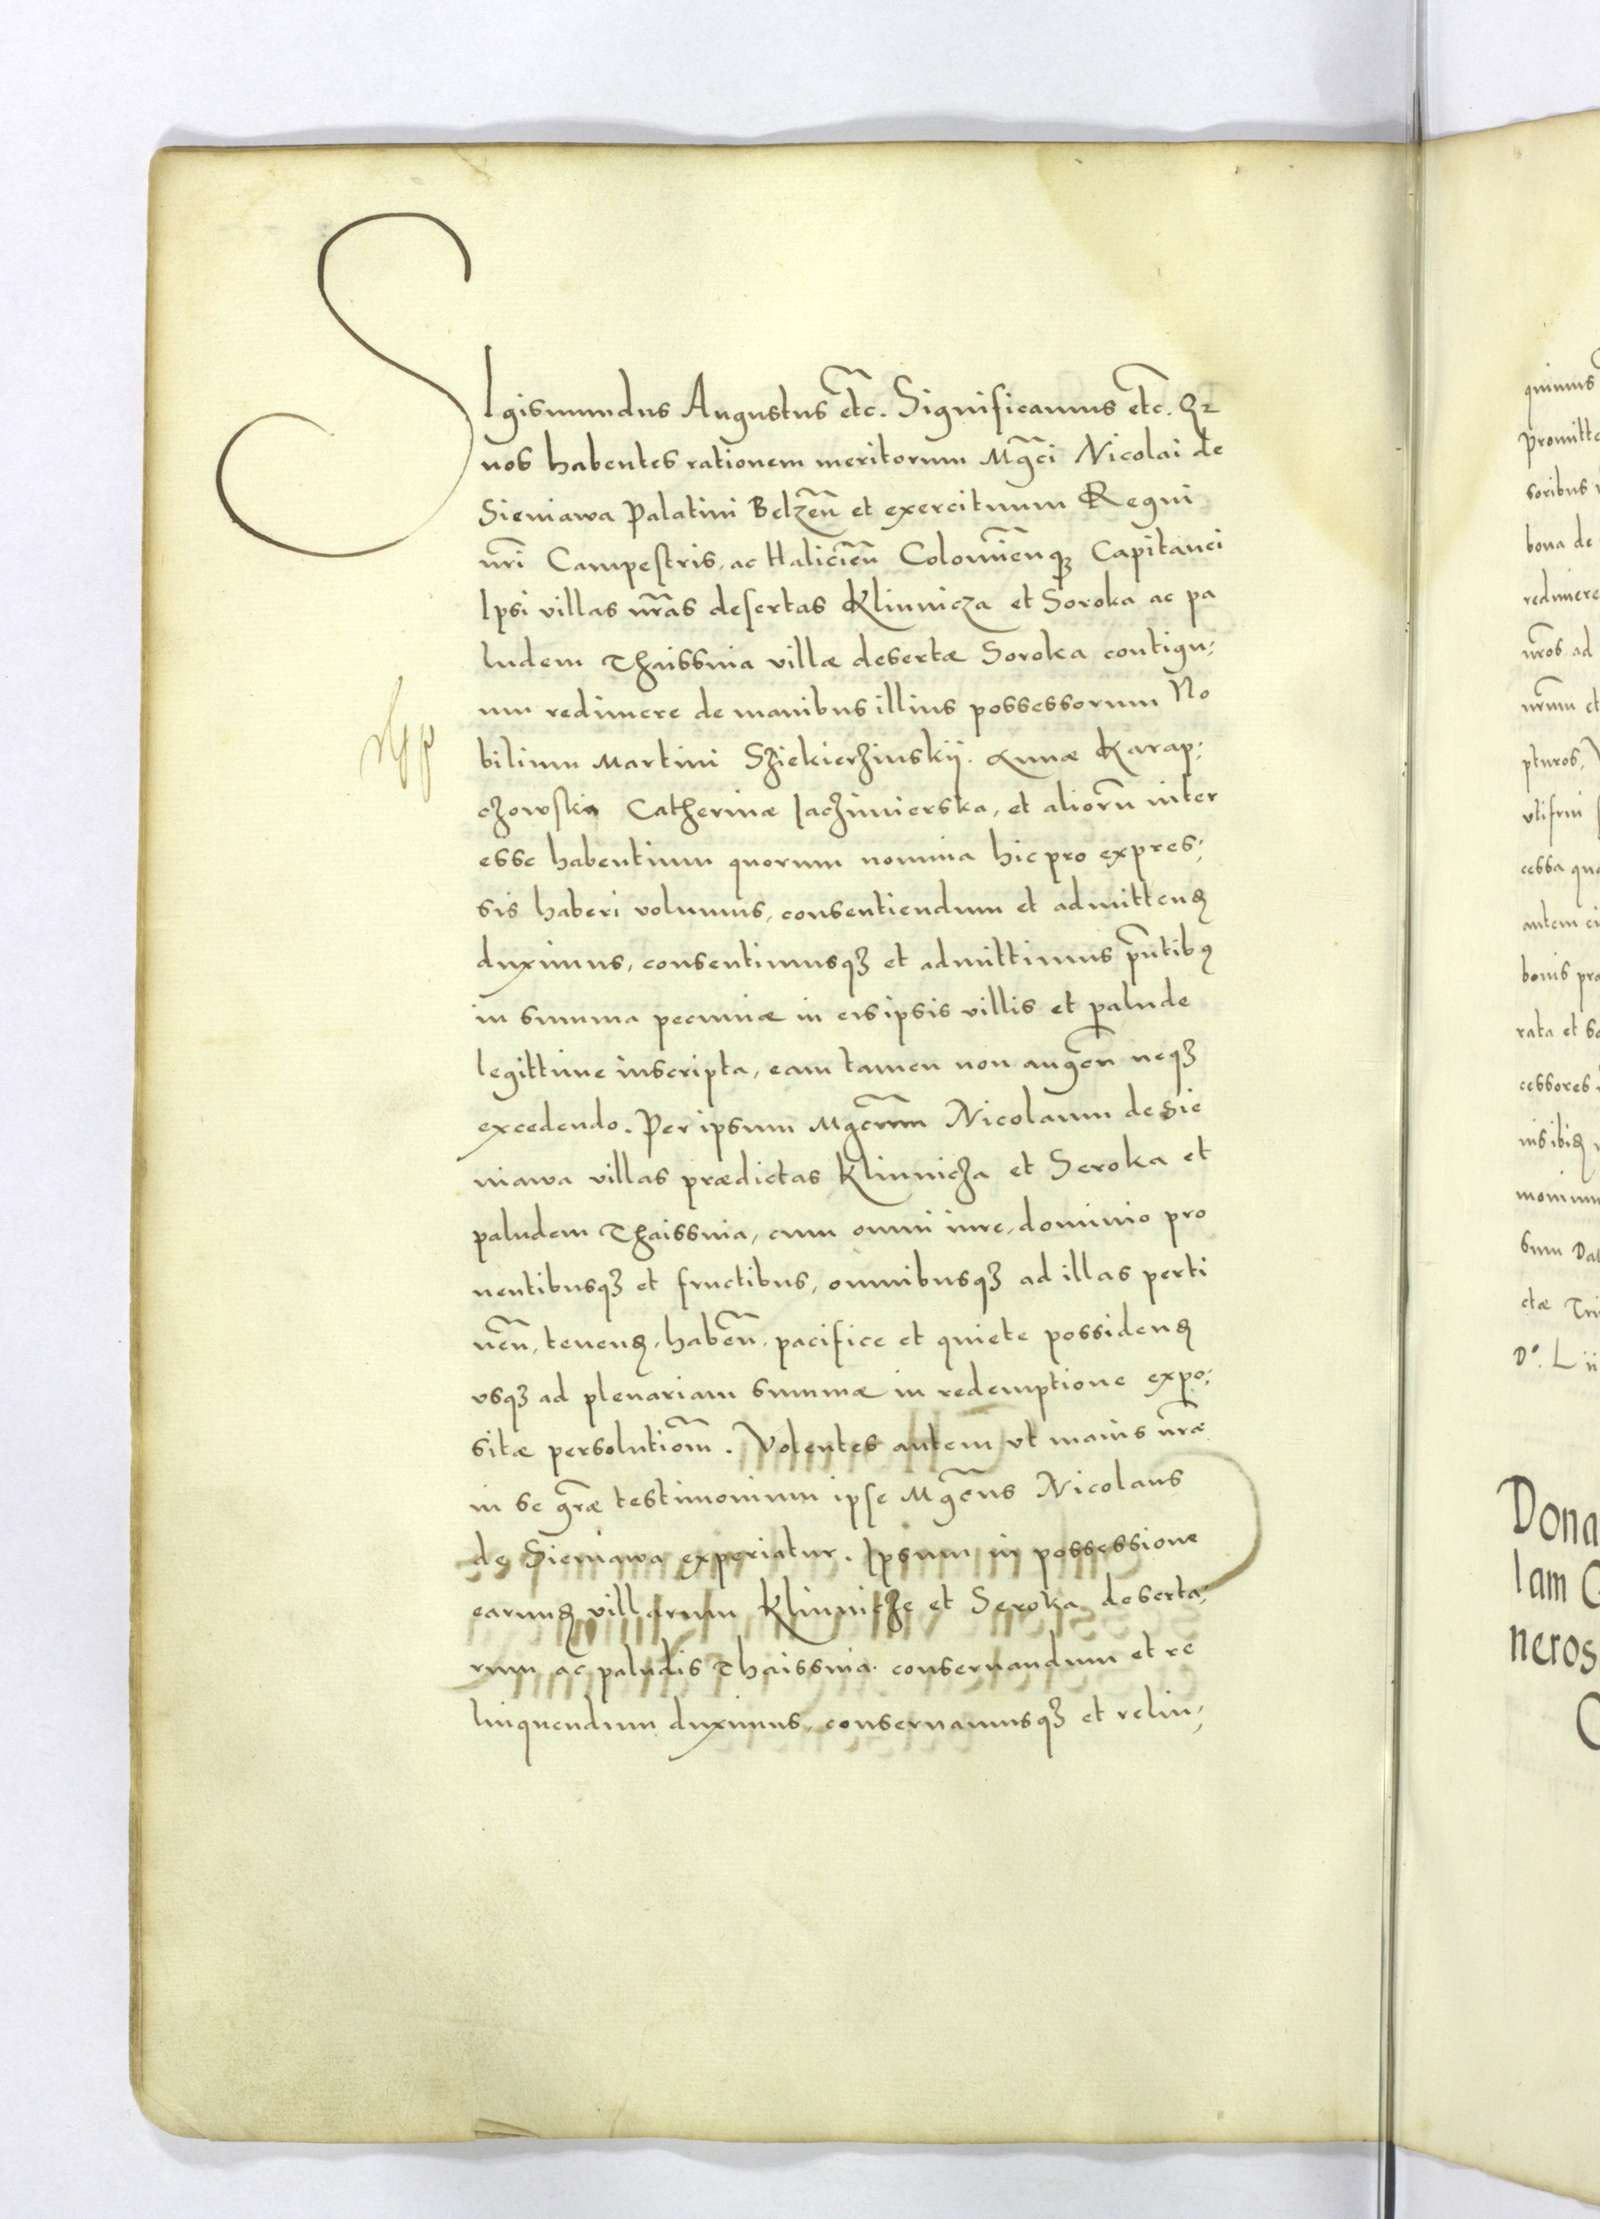 SIgismundus Augustus etc̃. Significamus etc̃. Qz
nos habentes rationem meritorum Mg̃ci Nicolai de
Sieniawa Palatini Belzeñ et exercituum Regni
nr̃i Campestris, ac Halicieñ Colomieñqʒ Capitanei
Ipsi villas nr̃as desertas Klinnicza et Soroka ac pa
ludem Thaissnia villæ desertæ Soroka contigu,,
um redimere de manibus illius possessorum No
bilium Martini Sziekierzinskij. Annæ Karap,,
czowska Catherinæ Jaczimierska, et aliorũ inter
esse habentium quorum nomina hic pro expres,,
sis haberi volumus, consentiendum et admittenꝫ
duximus, consentimusqʒ et admittimus pñtibꝫ
in summa pecuniæ in eis ipsis villis et palude
legittime inscripta, eam tamen non augeñ neqʒ
excedendo. Per ipsum Mgc̃um Nicolaum de Sie
niawa villas prædictas Klinnicza et Seroka et
paludem Thaissnia, cum omni iure, dominio pro
uentibusqʒ et fructibus, omnibusqʒ ad illas perti
neñ, tenenꝫ, habeñ, pacifice et quiete possidenꝫ
vsqʒ ad plenariam summæ in redemptione expo,,
sitæ persolutioñm. Volentes autem vt maius nr̃æ
in se gr̃æ testimonium ipse Mgc̃us Nicolaus
de Sieniawa experiatur. Ipsum in possessione
earumꝫ villarum Klinnicze et Seroka deserta,,
rum ac paludis Thaissnia conseruandum et re
linquendum duximus, conseruamusqʒ et relin,,
quimus
promitt
soribus
bona de
redimere
nr̃os ad
nr̃um et
pturos,
vtifrui
cessa qua
autem ei
bonis pra
rata et
cessores
nisibꝫ
monium
sum Dat
ctæ Tri
Dº. L ii
Dona
lam
neros